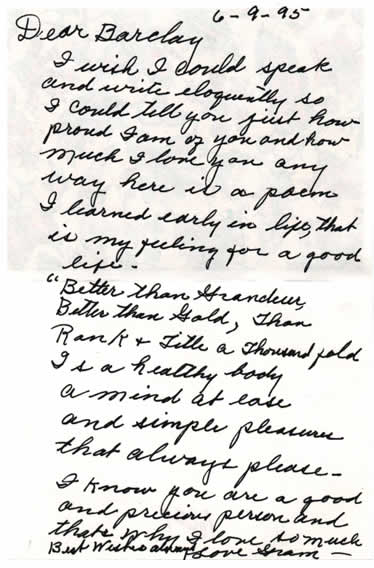 6-9-95
Dear Barclay
I wish I could speak
and write eloquently so
I could tell you just how
proud I am of you and how
much I love you any
way here is a poem
I learned early in life, that
is my feeling for a good
life -
"Better than Grandeur,
Better than Gold, Than
Rank + Title a Thousand fold
Is a healthy body
a mind at ease
and simple pleasures
that always please -
I know you are a good
and precious person and
thats why I love so much
Best Wishes always
Love Gram -